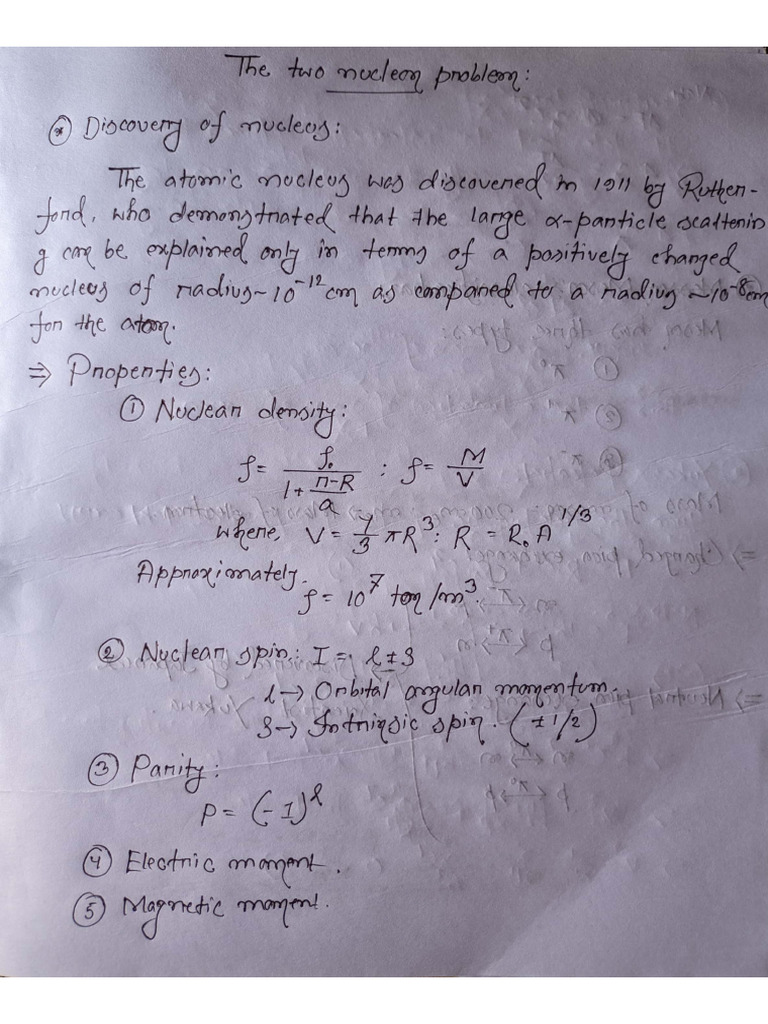 The two nucleon problem:
⊛ Discovery of nucleus:
The atomic nucleus was discovered in 1911 by Ruther-
ford, who demonstrated that the large α-particle scatterin
g can be explained only in terms of a positively charged
nucleus of radius ~ 10⁻¹² cm as compared to a radius ~10⁻⁸ cm
for the atom.
⇒ Properties:
① Nuclear density:
ρ = ρ₀ / (1 + (r-R)/a) : ρ = M/V
where, V = 4/3 πR³ : R = R₀A^1/3
Approximately.
ρ = 10⁷ ton/m³.
② Nuclear spin: I = l ± s
l → Orbital angular momentum.
s → Intrinsic spin. (±1/2)
③ Parity:
P = (-1)^l
④ Electric moment.
⑤ Magnetic moment.